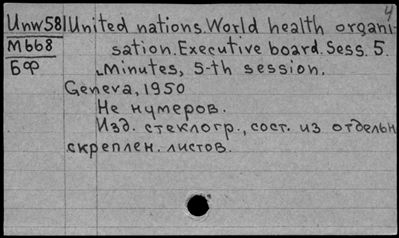 4
Unw58 United nations. World health organi-
M668 sation. Executive board. Sess. 5.
БФ Minutes, 5-th session.
Geneva, 1950
Не нумеров.
Изд. стеклогр., сост. из отдельн
скреплен. листов.